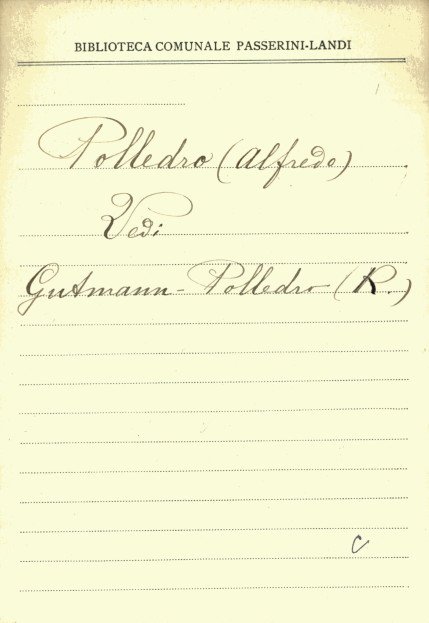 BIBLIOTECA COMUNALE PASSERINI-LANDI
Polledro (Alfredo)
Vedi
Gutmann-Polledro (R.)
C